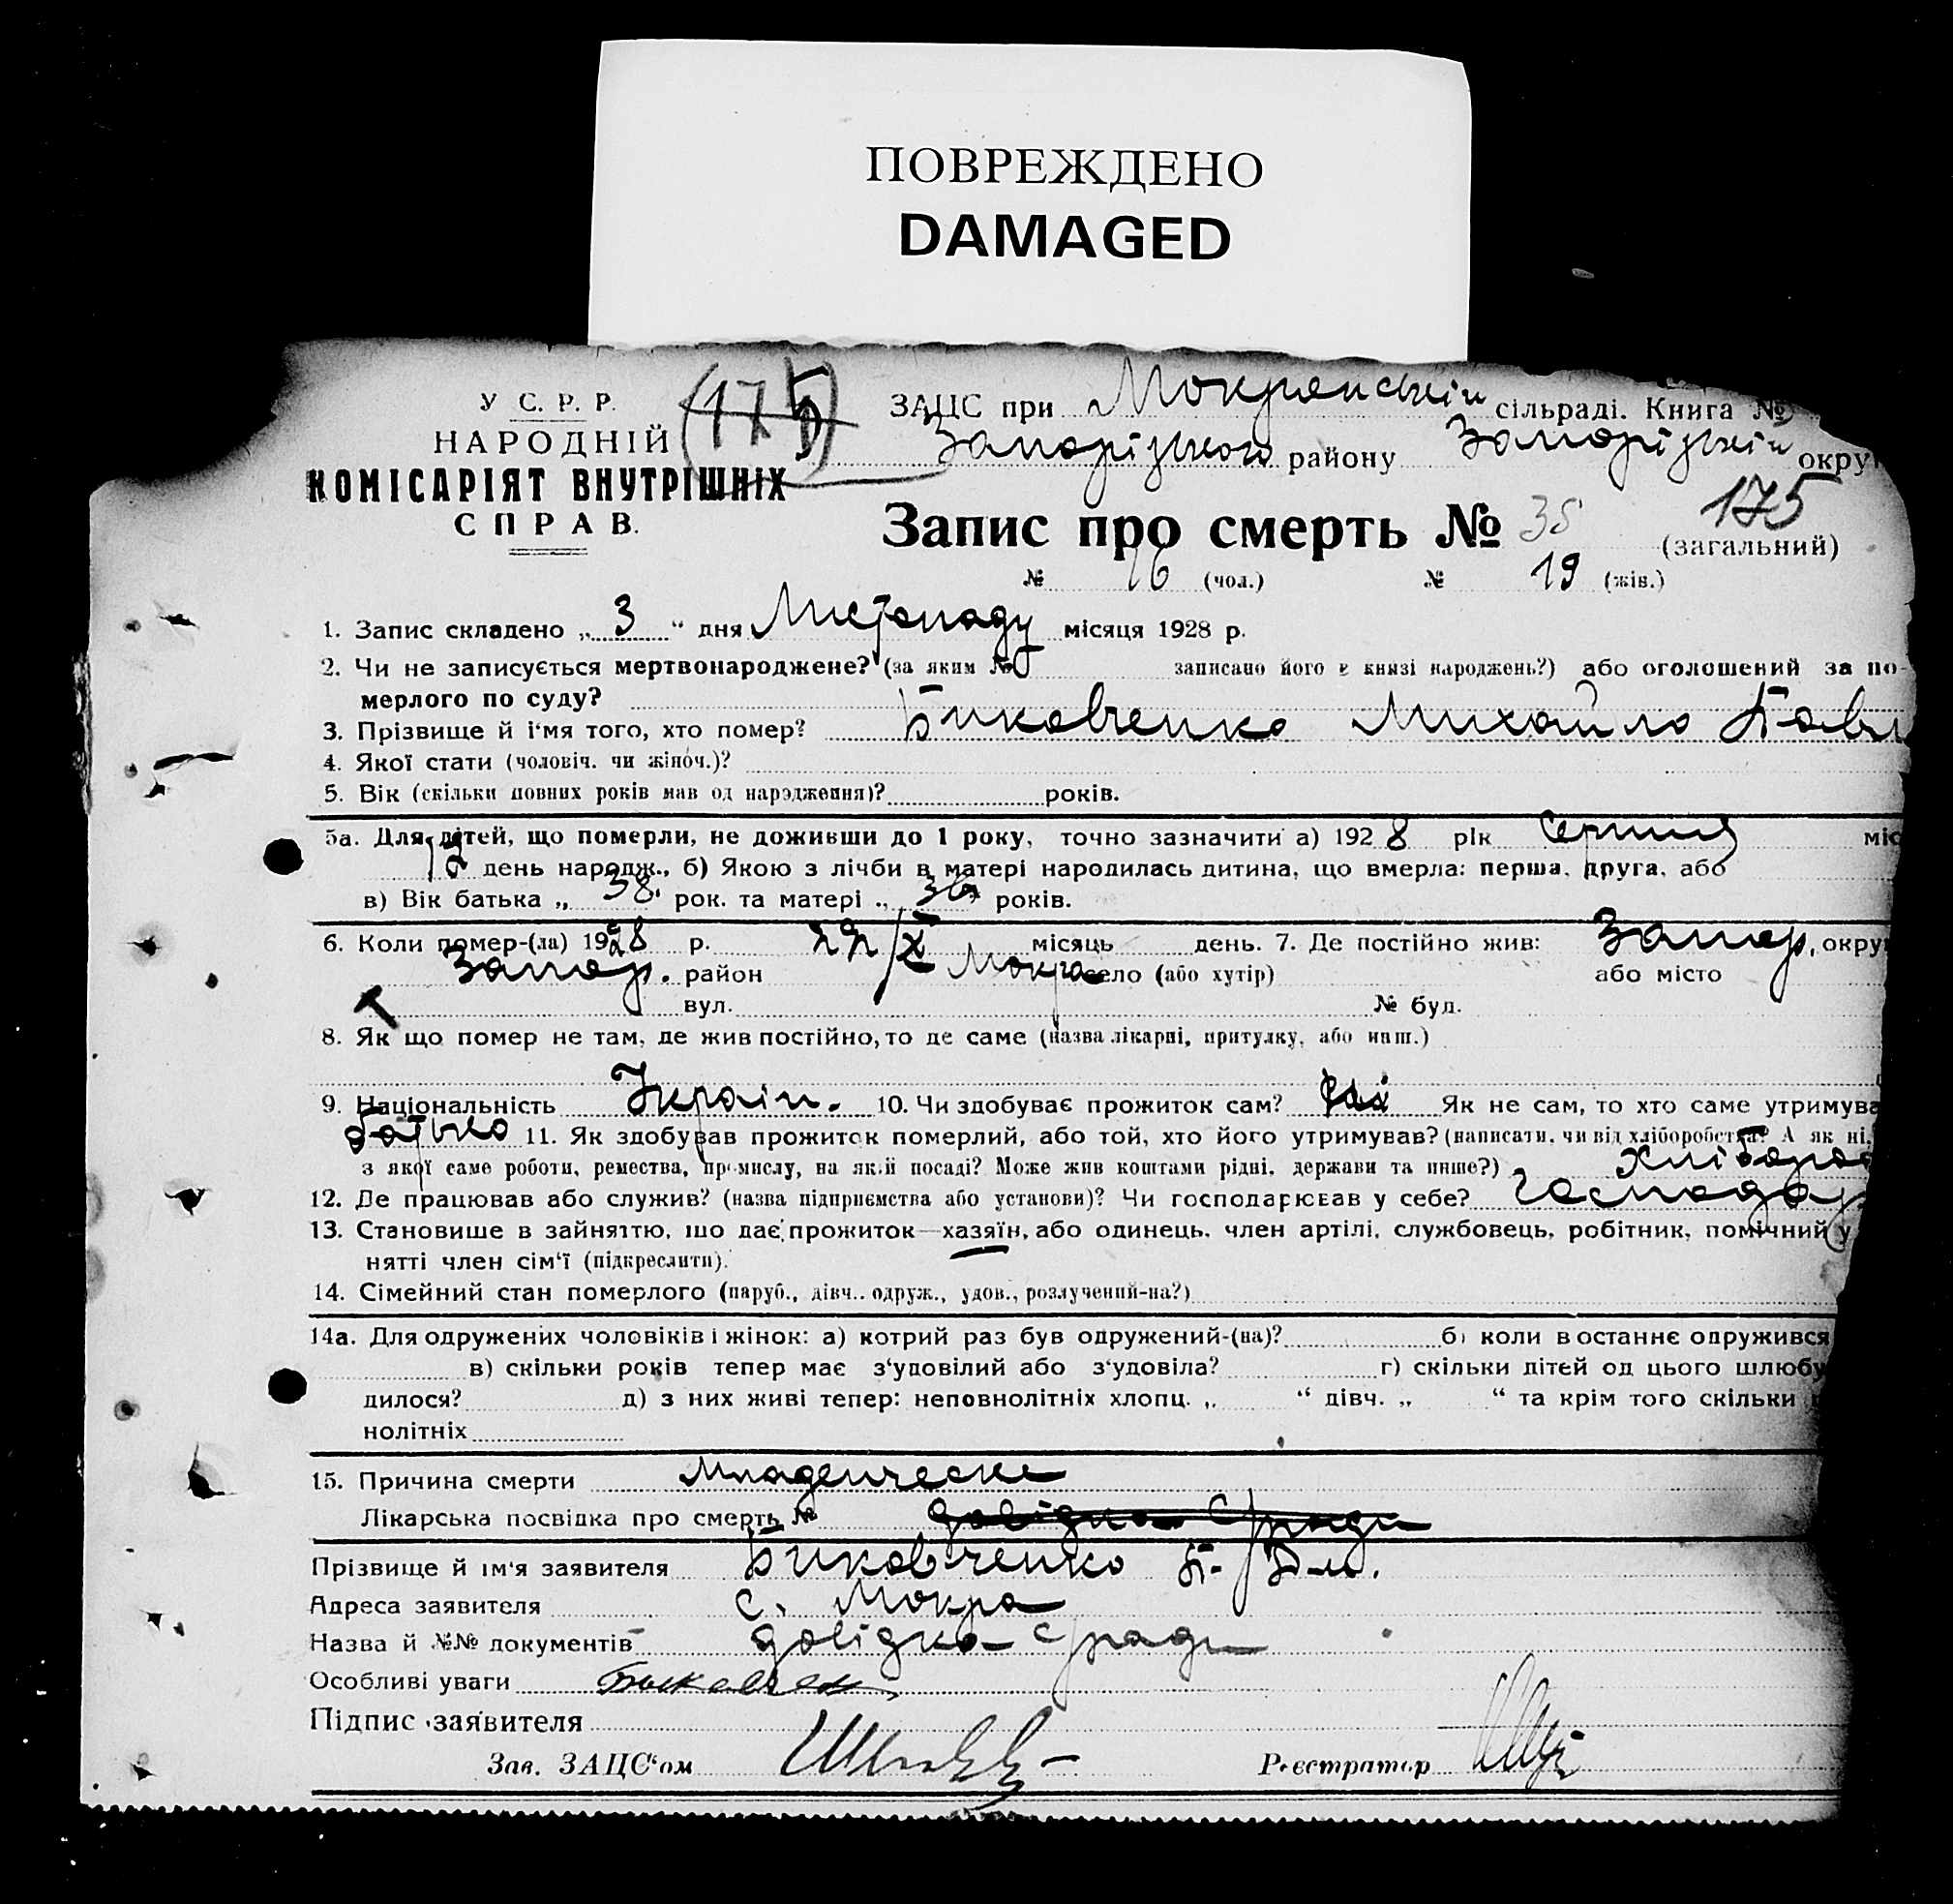 ПОВРЕЖДЕНО
DAMAGED
У С. Р. Р.
НАРОДНІЙ
КОМІСАРІЯТ ВНУТРІШНІХ
СПРАВ.
(175)
ЗАЦС при Мокрянській сільраді. Книга №
Запорізького району Запорізькій окру
Запис про смерть № 35 175 (загальний)
№ 16 (чол.) № 19 (жін.)
1. Запис складено „ 3 “ дня Листопаду місяця 1928 р.
2. Чи не записується мертвонароджене? (за яким № записано його в книзі народжень?) або оголошений за по-
мерлого по суду?
3. Прізвище й і'мя того, хто помер? Биковченко Михайло Павл
4. Якої стати (чоловіч. чи жіноч.)?
5. Вік (скільки повних років мав од народження)? років.
5а. Для дітей, що померли, не доживши до 1 року, точно зазначити а) 1928 рік Серпня міс
день народж., б) Якою з лічби в матері народилась дитина, що вмерла: перша, друга, або
в) Вік батька „ 38 “ рок. та матері „ років.
6. Коли помер-(ла) 1928 р. місяць день. 7. Де постійно жив: Запор. окру
Запор. район Мокра село (або хутір) або місто
вул. № буд.
8. Як що помер не там, де жив постійно, то де саме (назва лікарні, притулку, або инш.)
9. Національність Україн. 10. Чи здобуває прожиток сам? Як не сам, то хто саме утримува
батько 11. Як здобував прожиток померлий, або той, хто його утримував? (написати, чи від хліборобства? А як ні,
з якої саме роботи, ремества, промислу, на якій посаді? Може жив коштами рідні, держави та инше?) хлібороб
12. Де працював або служив? (назва підприємства або установи)? Чи господарював у себе? господар
13. Становище в зайняттю, що дає прожиток—хазяїн, або одинець, член артілі, службовець, робітник, помічний у
нятті член сім'ї (підкреслити).
14. Сімейний стан померлого (паруб., дівч.. одруж., удов., розлучений-на?)
14а. Для одружених чоловіків і жінок: а) котрий раз був одружений-(на)? б) коли востаннє одружився
в) скільки років тепер має з'удовілий або з'удовіла? г) скільки дітей од цього шлюбу
дилося? д) з них живі тепер: неповнолітніх хлопц. „ “ дівч. „ “ та крім того скільки
нолітніх
15. Причина смерти Младенческе
Лікарська посвідка про смерть № довідка С/ради
Прізвище й ім'я заявителя Биковченко П.
Адреса заявителя с. Мокра
Назва й №№ документів довідка с/ради
Особливі уваги
Підпис заявителя
Зав. ЗАЦС'ом Реєстратор